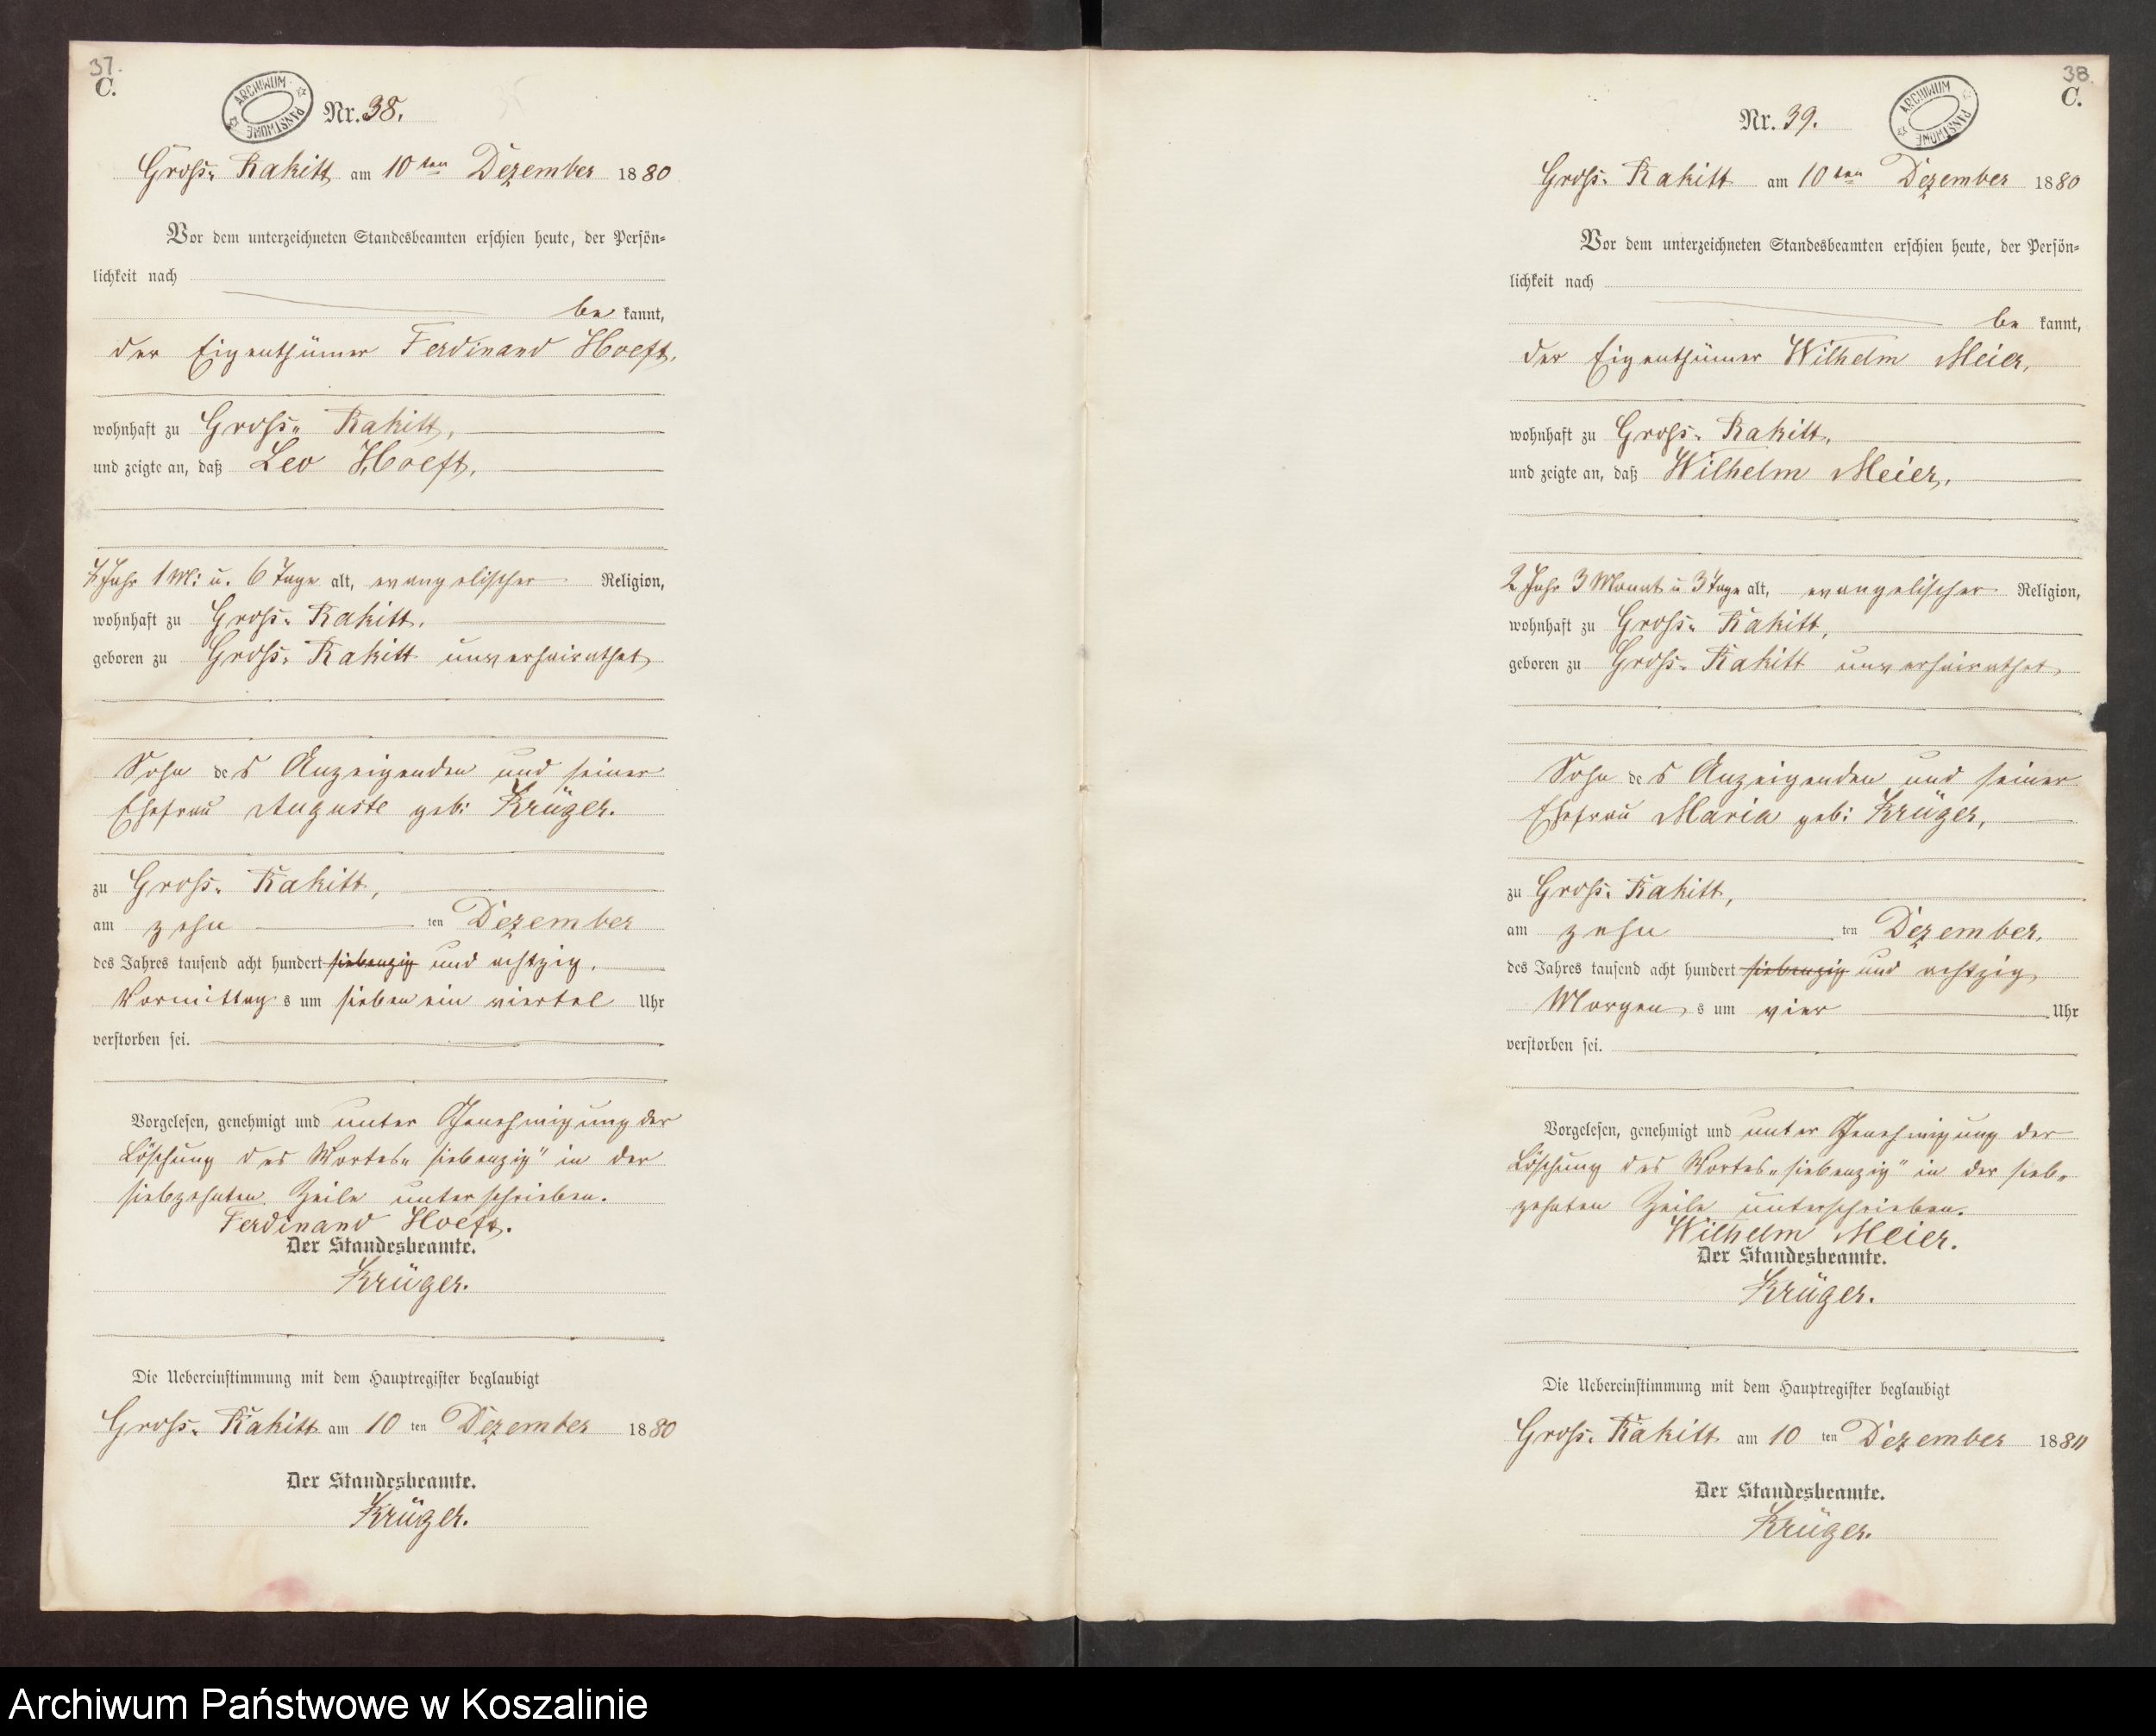 37.
C.
ARCHIWUM PAŃSTWOWE
Nr. 38.
Groß- Rakitt am 10ten Dezember 1880
Vor dem unterzeichneten Standesbeamten erschien heute, der Persön-
lichkeit nach
be kannt,
der Eigenthümer Ferdinand Hoeft,
wohnhaft zu Groß- Rakitt,
und zeigte an, daß Leo Hoeft,
Jahr 1 M: u. 6 Tage alt, evangelischer Religion,
wohnhaft zu Groß- Rakitt,
geboren zu Groß- Rakitt unverheirathet
Sohn des Anzeigenden und seiner
Ehefrau Auguste geb: Krüger.
zu Groß- Rakitt,
am zehn ten Dezember
des Jahres tausend acht hundert siebenzig und achtzig,
Vormittag s um sieben ein viertel Uhr
verstorben sei.
Vorgelesen, genehmigt und unter Genehmigung der
Löschung des Wortes „siebenzig" in der
siebzehnten Zeile unterschrieben.
Ferdinand Hoeft.
Der Standesbeamte.
Krüger.
Die Uebereinstimmung mit dem Hauptregister beglaubigt
Groß- Rakitt am 10 ten Dezember 1880
Der Standesbeamte.
Krüger.
38.
C.
ARCHIWUM PAŃSTWOWE
Nr. 39.
Groß- Rakitt am 10ten Dezember 1880
Vor dem unterzeichneten Standesbeamten erschien heute, der Persön-
lichkeit nach
be kannt,
der Eigenthümer Wilhelm Meier,
wohnhaft zu Groß- Rakitt,
und zeigte an, daß Wilhelm Meier,
2 Jahr 3 Monat u 3 Tage alt, evangelischer Religion,
wohnhaft zu Groß- Rakitt,
geboren zu Groß- Rakitt unverheirathet,
Sohn des Anzeigenden und seiner
Ehefrau Maria geb: Krüger,
zu Groß- Rakitt,
am zehn ten Dezember,
des Jahres tausend acht hundert siebenzig und achtzig
Morgen s um vier Uhr
verstorben sei.
Vorgelesen, genehmigt und unter Genehmigung der
Löschung des Wortes „siebenzig" in der sieb-
zehnten Zeile unterschrieben.
Wilhelm Meier.
Der Standesbeamte.
Krüger.
Die Uebereinstimmung mit dem Hauptregister beglaubigt
Groß- Rakitt am 10 ten Dezember 1880
Der Standesbeamte.
Krüger.
Archiwum Państwowe w Koszalinie